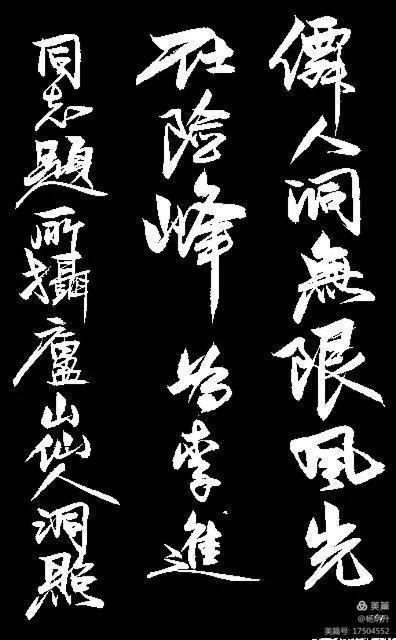 僊人洞無限風光
在險峰 為李進
同志題所攝廬山仙人洞照
美篇
美篇号: 17504552